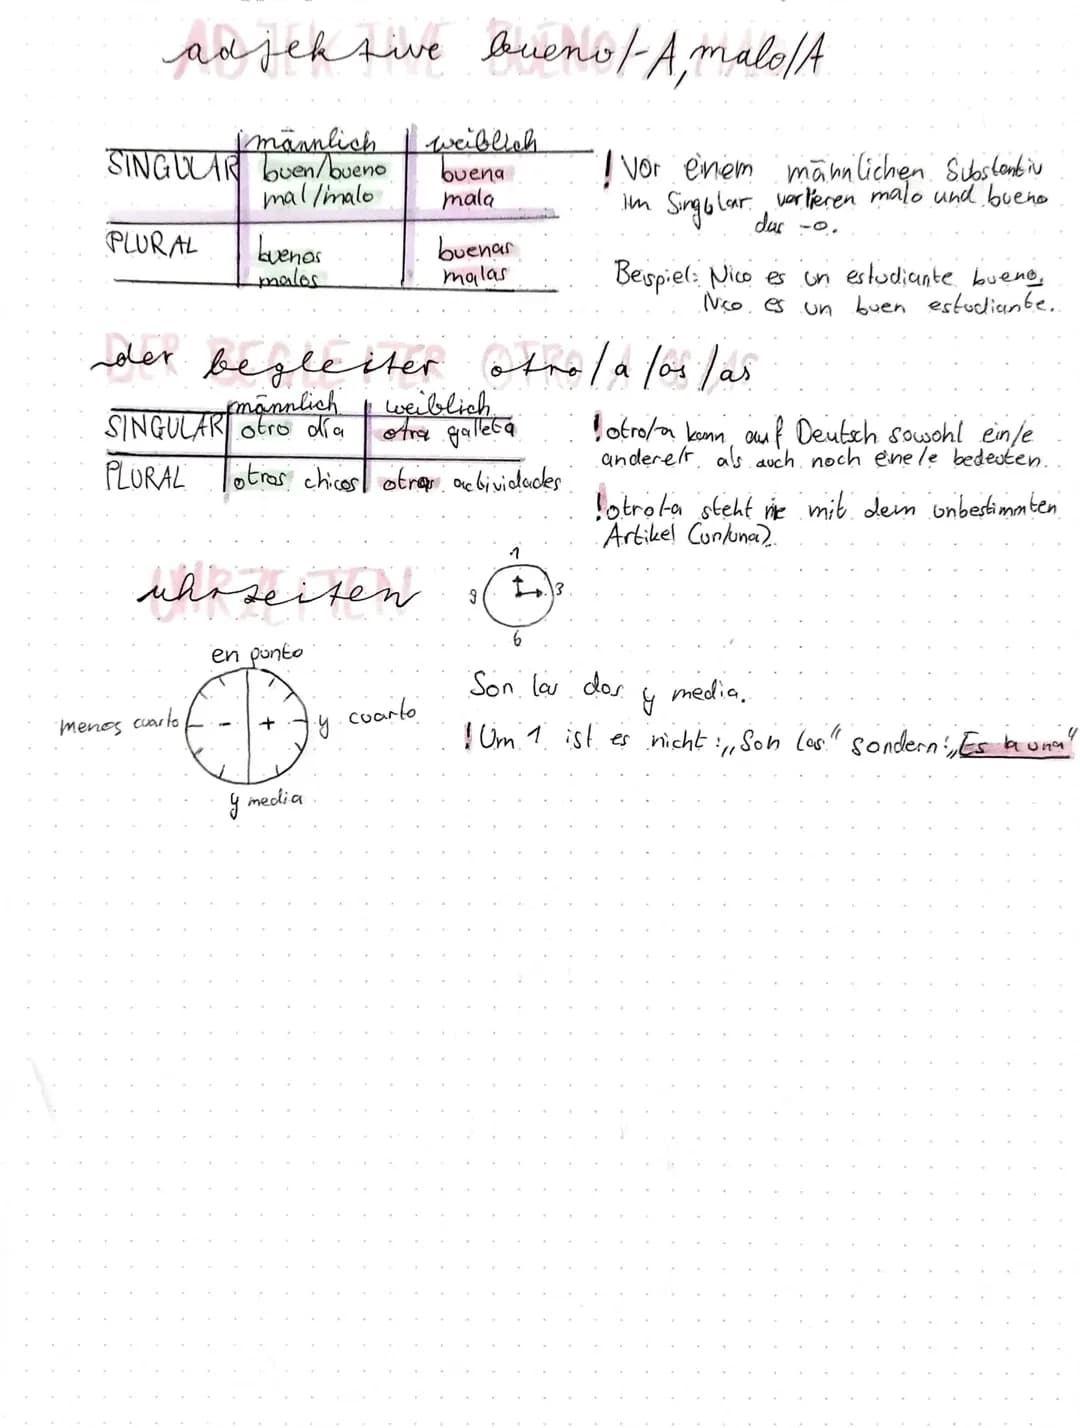 adjektive bueno/-A, malo/A
männlich weiblich
SINGULAR buen/bueno buena
mal/malo mala
PLURAL buenos buenas
malos malas
! Vor einem männlichen Substantiv
im Singular verlieren malo und bueno
das -o.
Beispiel: Nico es un estudiante bueno.
Nico es un buen estudiante.
der begleiter otro/a/os/as
männlich weiblich
SINGULAR otro día otra galleta
PLURAL otros chicos otras actividades
! otro/a kann auf Deutsch sowohl ein/e
andere/r als auch noch eine/e bedeuten.
! otro/a steht nie mit dem unbestimmten
Artikel (un/una).
uhrzeiten
1
9 3
6
en punto
menos cuarto - + y cuarto
y media
Son las dos y media.
! Um 1 ist es nicht: „Son las" sondern: „Es la una"